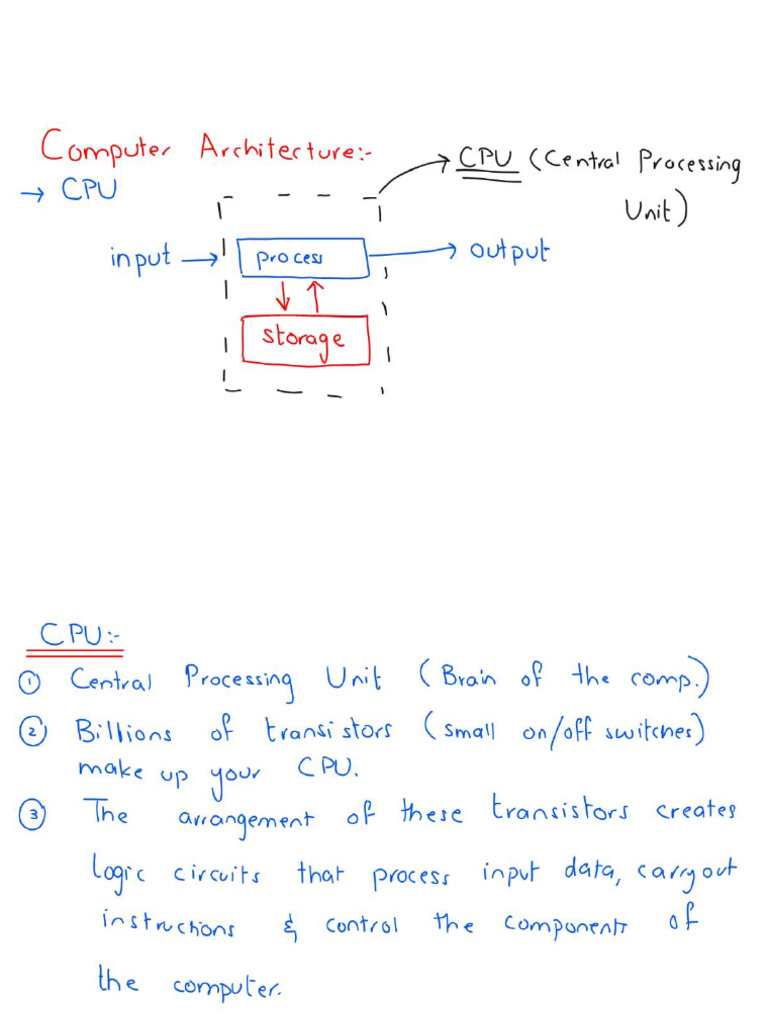 Computer Architecture:-
→ CPU
CPU (Central Processing
Unit)
input
process
output
storage
CPU:-
① Central Processing Unit (Brain of the comp.)
② Billions of transistors (small on/off switches)
make up your CPU.
③ The arrangement of these transistors creates
Logic circuits that process input data, carryout
instructions & control the components of
the computer.